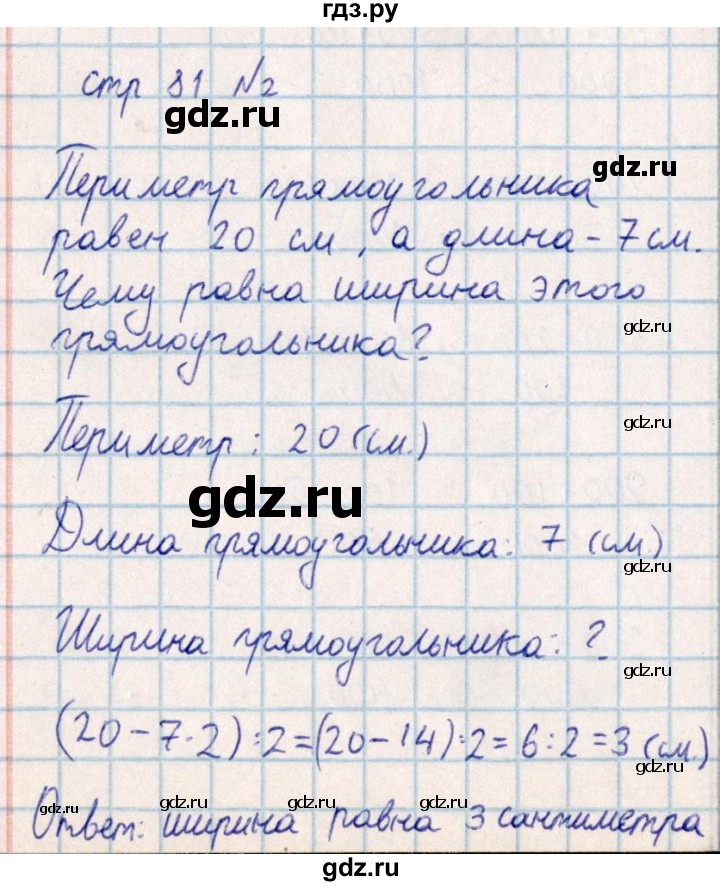 гдз.ру
стр 81 №2
gdz.ru
gdz.ru
Периметр прямоугольника
равен 20 см, а длина - 7 см.
Чему равна ширина этого
gdz.ru
прямоугольника?
Периметр: 20 (см.)
gdz.ru
gdz.ru
Длина прямоугольника: 7 (см.)
gdz.ru
Ширина прямоугольника: ?
gdz.ru
(20-7·2):2=(20-14):2=6:2=3 (см.)
gdz.ru gdz.ru gdz.ru gdz.ru gdz.ru
Ответ: ширина равна 3 сантиметра
gdz.ru